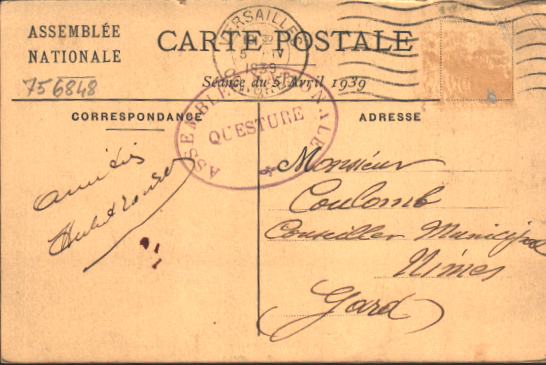 ASSEMBLÉE
NATIONALE
CARTE POSTALE
756848
Séance du 5 Avril 1939
VERSAILLES
5 IV
1939
CORRESPONDANCE
ADRESSE
ASSEMBLÉE NATIONALE
QUESTURE
Amitiés
Monsieur
Coulomb
Conseiller Municipal
Nîmes
Gard